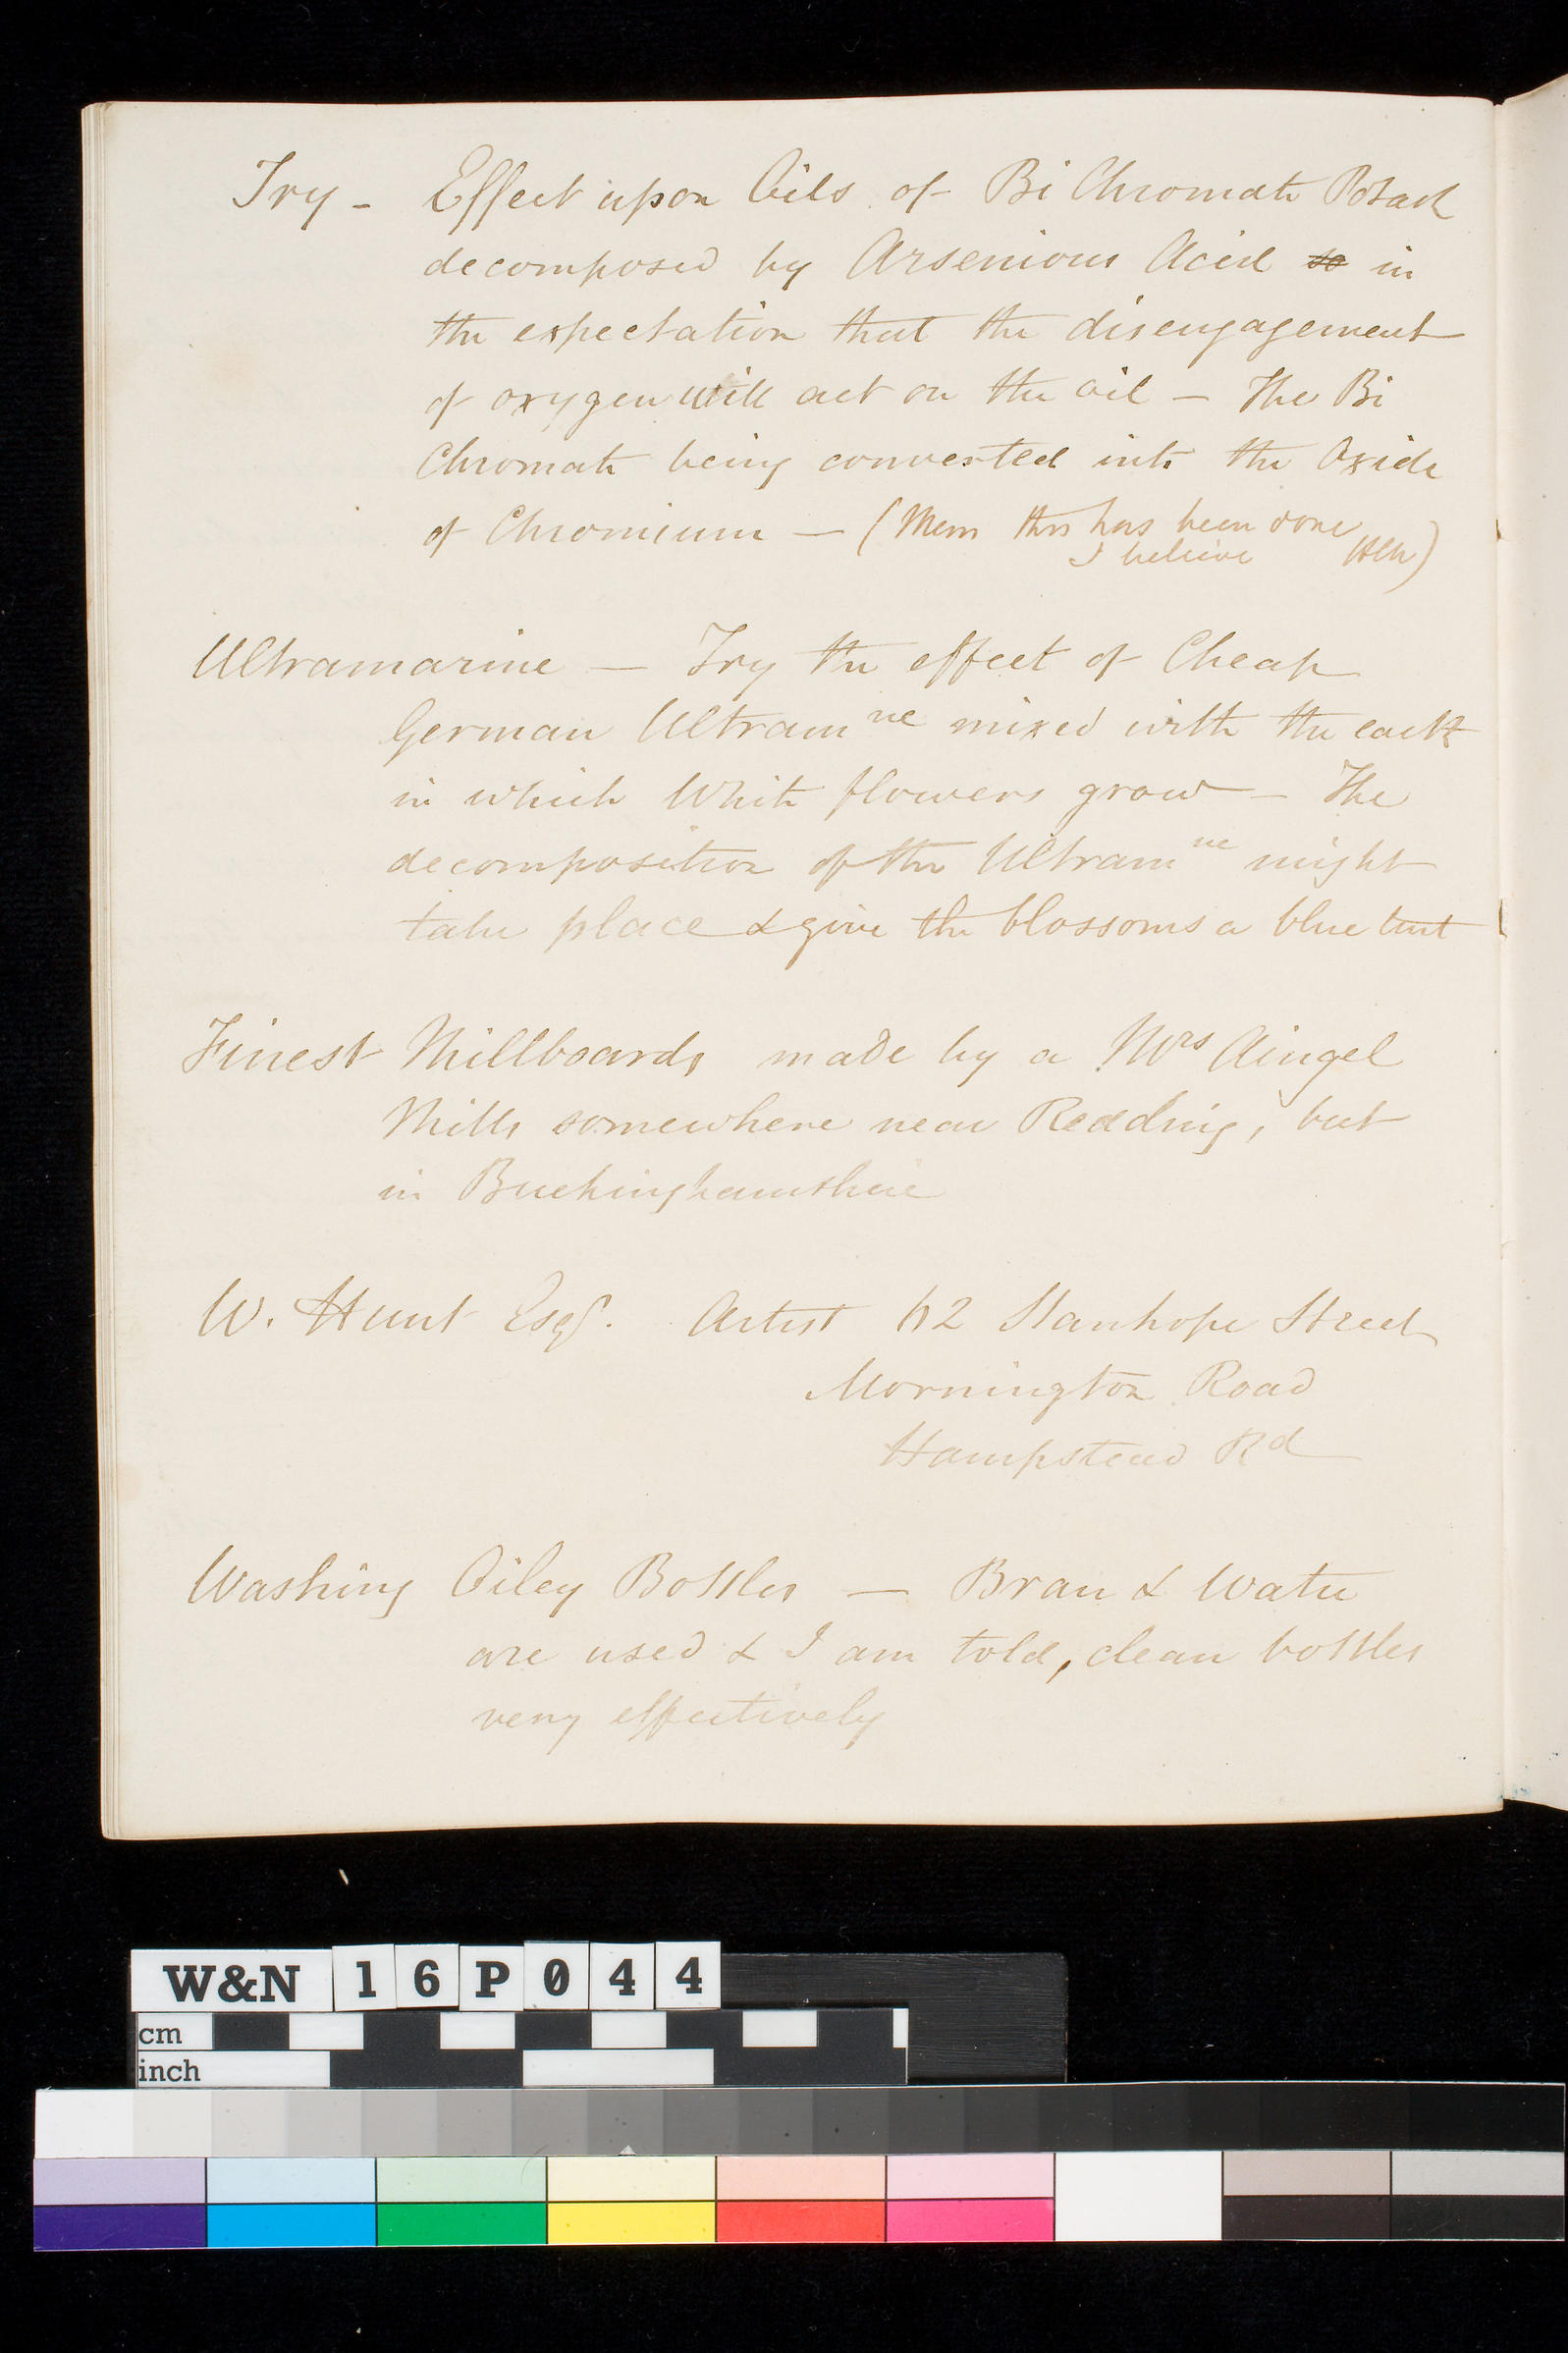 Try - Effect upon Oils of Bi Chromate Potash
decomposed by Arsenious Acid so in
the expectation that the disengagement
of oxygen will act on the oil - The Bi
Chromate being converted into the Oxide
of Chromium - (Mem this has been done
I believe HCN)
Ultramarine - Try the effect of Cheap
German Ultramne mixed with the earth
in which White flowers grow - The
decomposition of the Ultramne might
take place & give the blossoms a blue tint
Finest Millboards made by a Mrs Aingel
Mills somewhere near Redding, but
in Buckinghamshire
W. Hunt Esqr. Artist 62 Stanhope Street
Mornington Road
Hampstead Rd
Washing Oiley Bottles - Bran & Water
are used & I am told, clean bottles
very effectively
W&N 16P044
cm
inch